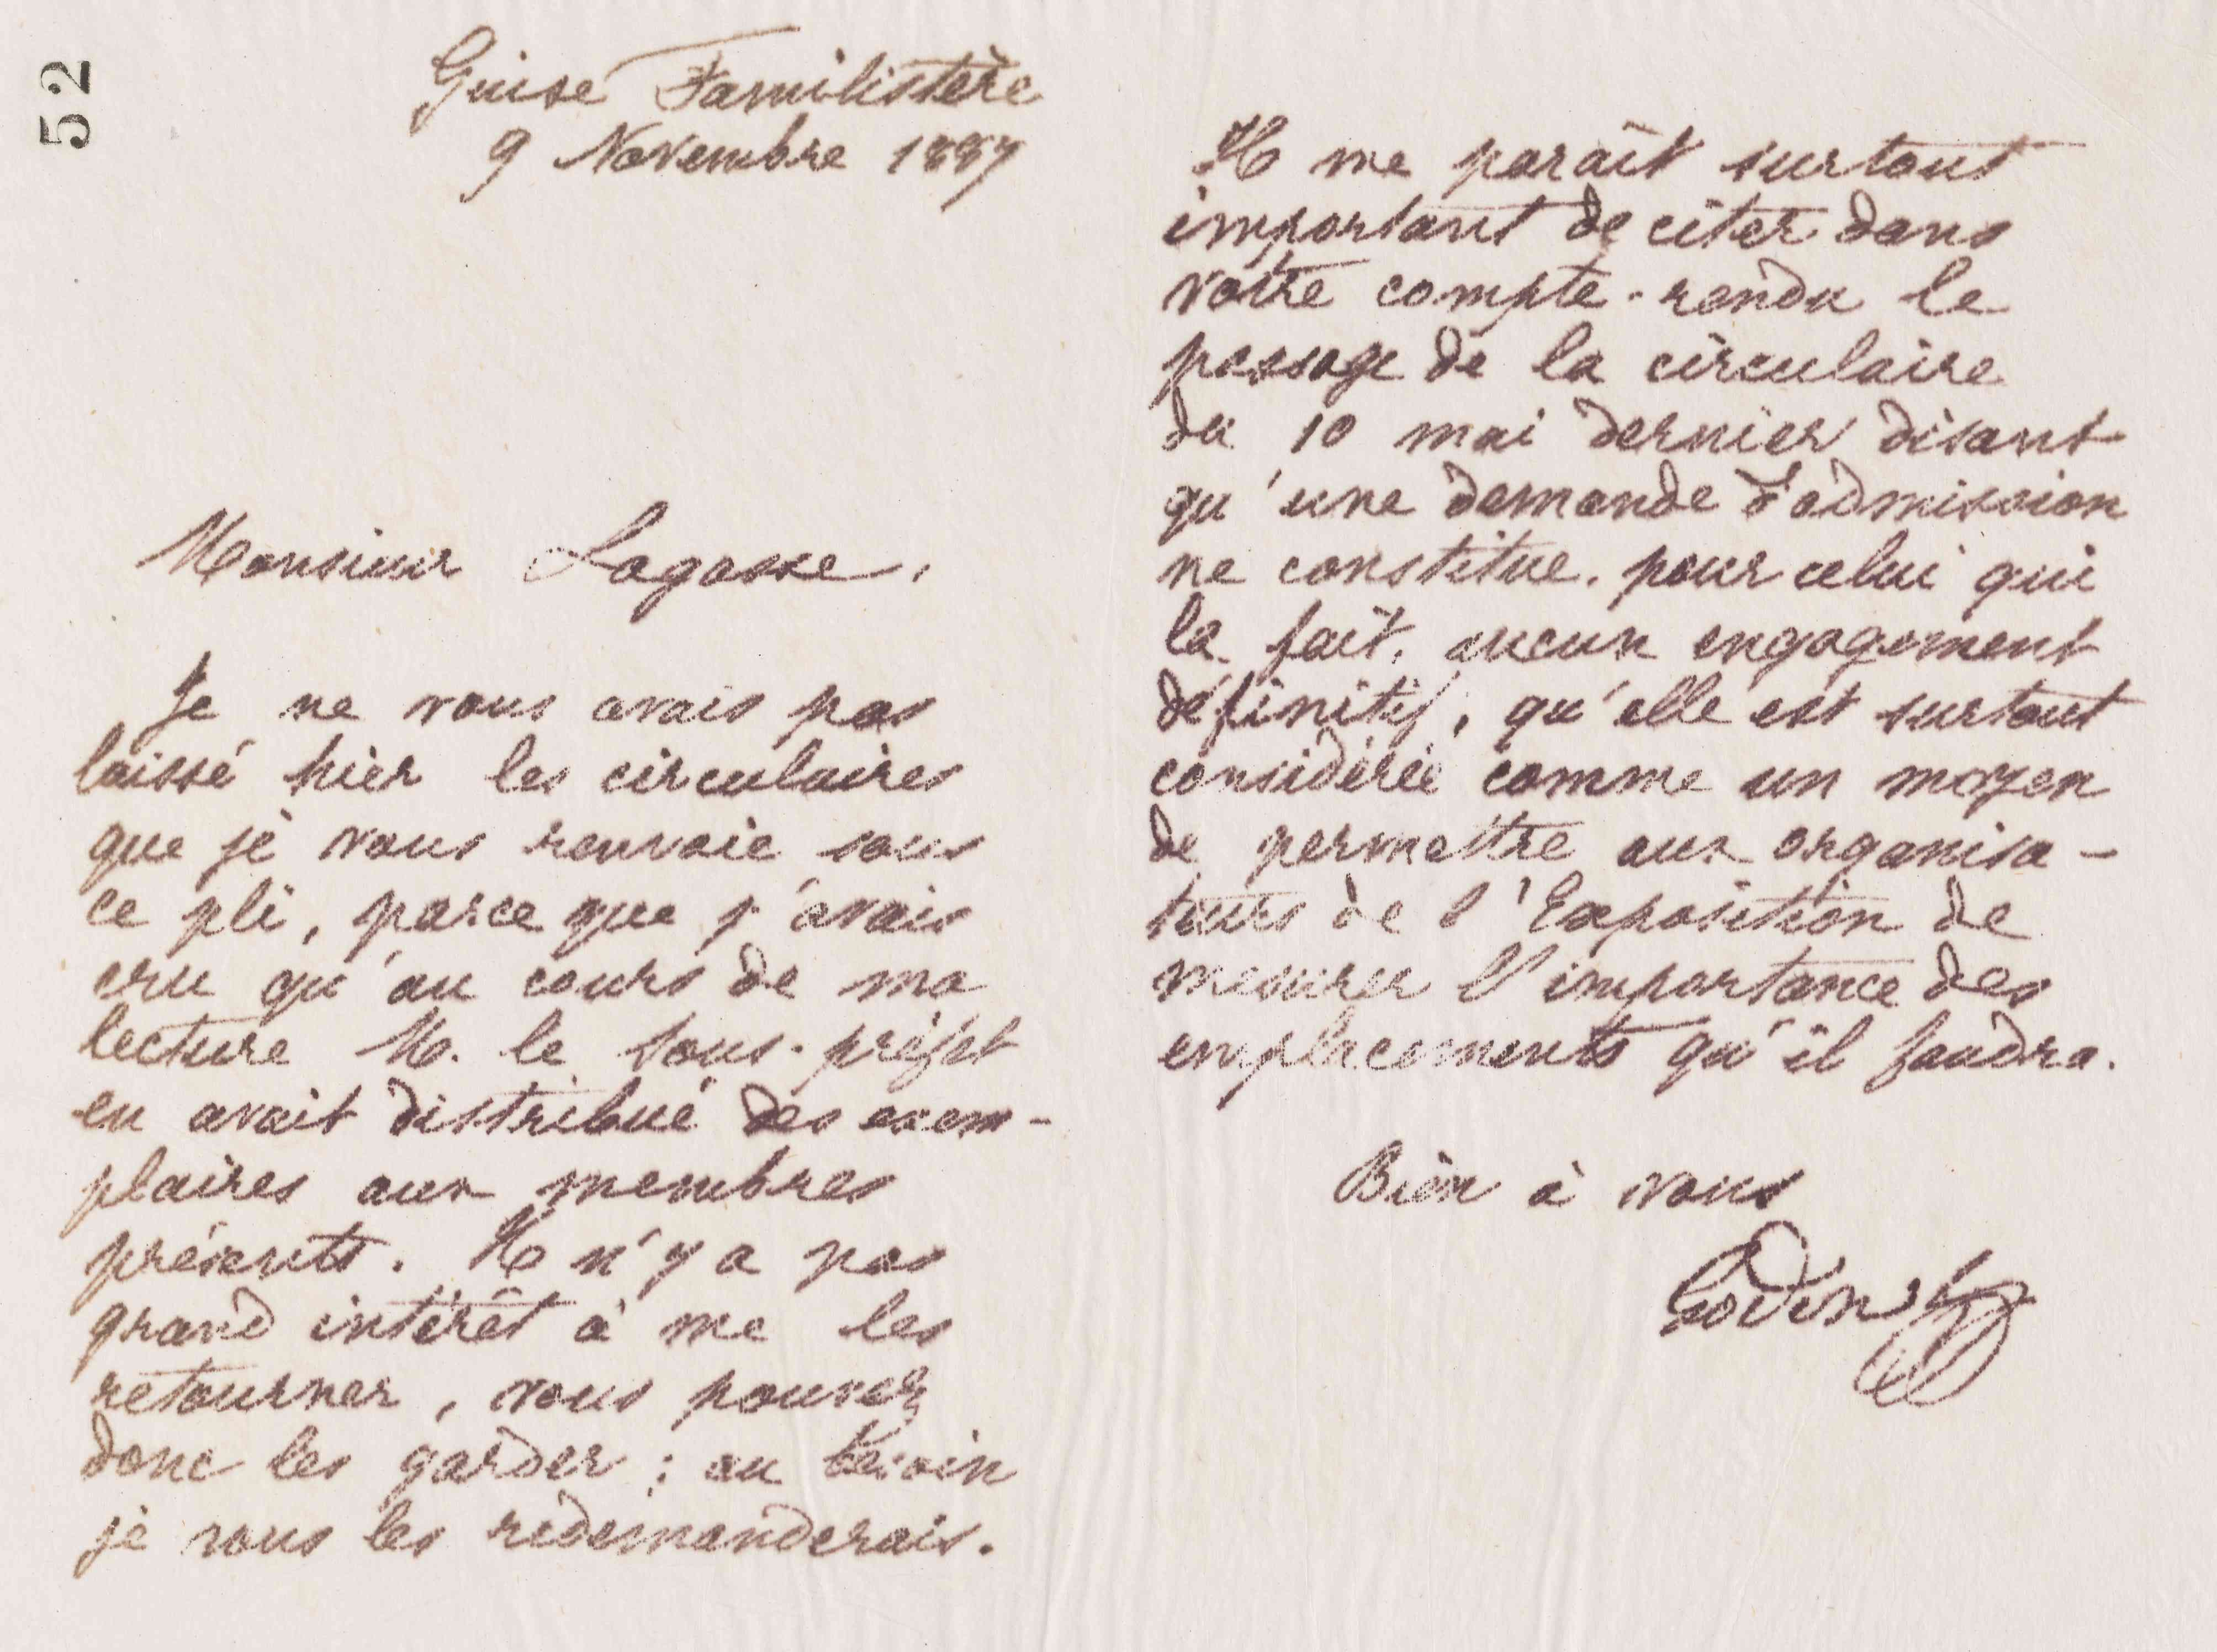 52
Guise Familistère
9 Novembre 1887
Monsieur Lagasse,
Je ne vous avais pas
laissé hier les circulaires
que je vous renvoie sous
ce pli, parce que j'avais
cru qu'au cours de ma
lecture M. le Sous-préfet
en avait distribué des exem-
plaires aux membres
présents. Il n'y a pas
grand intérêt à me les
retourner, vous pouvez
donc les garder ; au besoin
je vous les redemanderais.
Il me paraît surtout
important de citer dans
votre compte-rendu le
passage de la circulaire
du 10 mai dernier disant
qu'une demande d'admission
ne constitue, pour celui qui
la fait, aucun engagement
définitif, qu'elle est surtout
considérée comme un moyen
de permettre aux organisa-
teurs de l'Exposition de
mesurer l'importance des
emplacements qu'il faudra.
Bien à vous
Godin